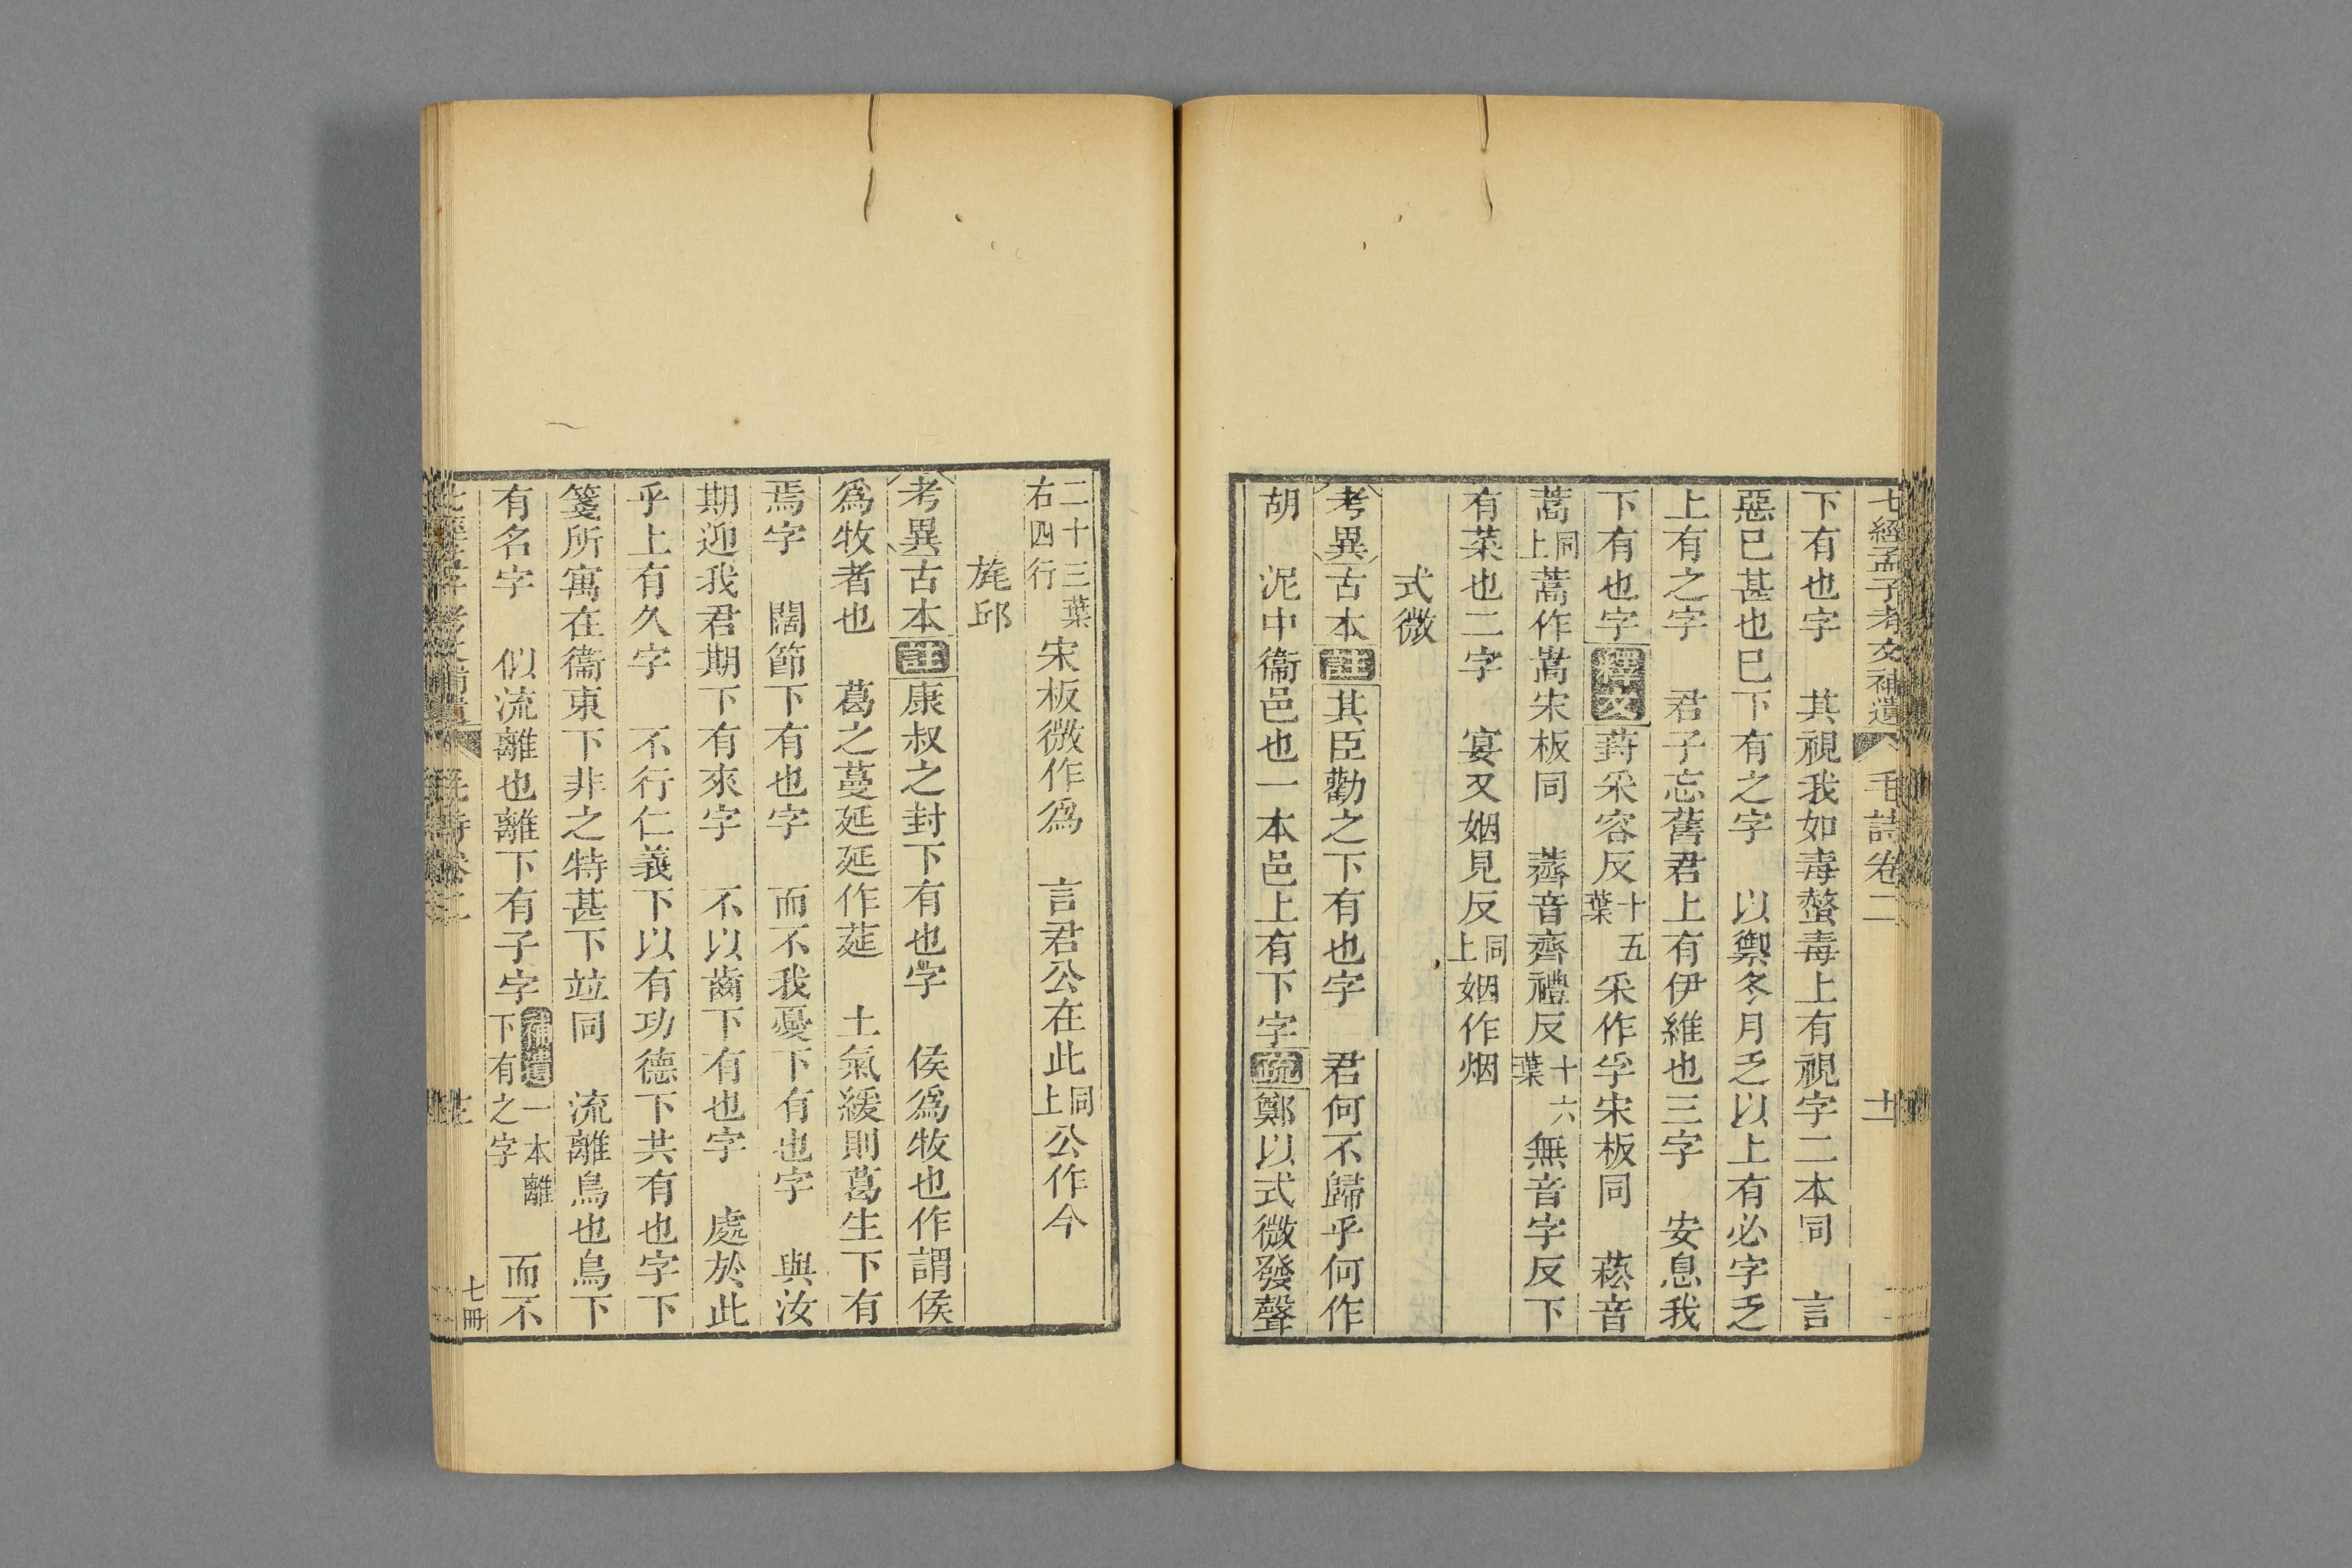 七經孟子考文補遺 毛詩卷二 十二
下有也字 其視我如毒螫毒上有視字二本同 言
惡已甚也已下有之字 以禦冬月乏以上有必字乏
上有之字 君子忘舊君上有伊維也三字 安息我
下有也字釋文葑采容反十五葉采作孚宋板同 菘音
蒿同上蒿作嵩宋板同 薺音齊禮反十六葉無音字反下
有菜也二字 宴又姻見反同上姻作烟
式微
考異古本註其臣勸之下有也字 君何不歸乎何作
胡 泥中衞邑也一本邑上有下字疏鄭以式微發聲
二十三葉右四行宋板微作爲 言君公在此同上公作今
旄邱
考異古本註康叔之封下有也字 侯爲牧也作謂侯
爲牧者也 葛之蔓延延作莚 土氣緩則葛生下有
焉字 闊節下有也字 而不我憂下有也字 與汝
期迎我君期下有來字 不以齒下有也字 處於此
乎上有久字 不行仁義下以有功德下共有也字下
箋所寓在衞東下非之特甚下竝同 流離鳥也鳥下
有名字 似流離也離下有子字補遺一本離下有之字 而不
七冊